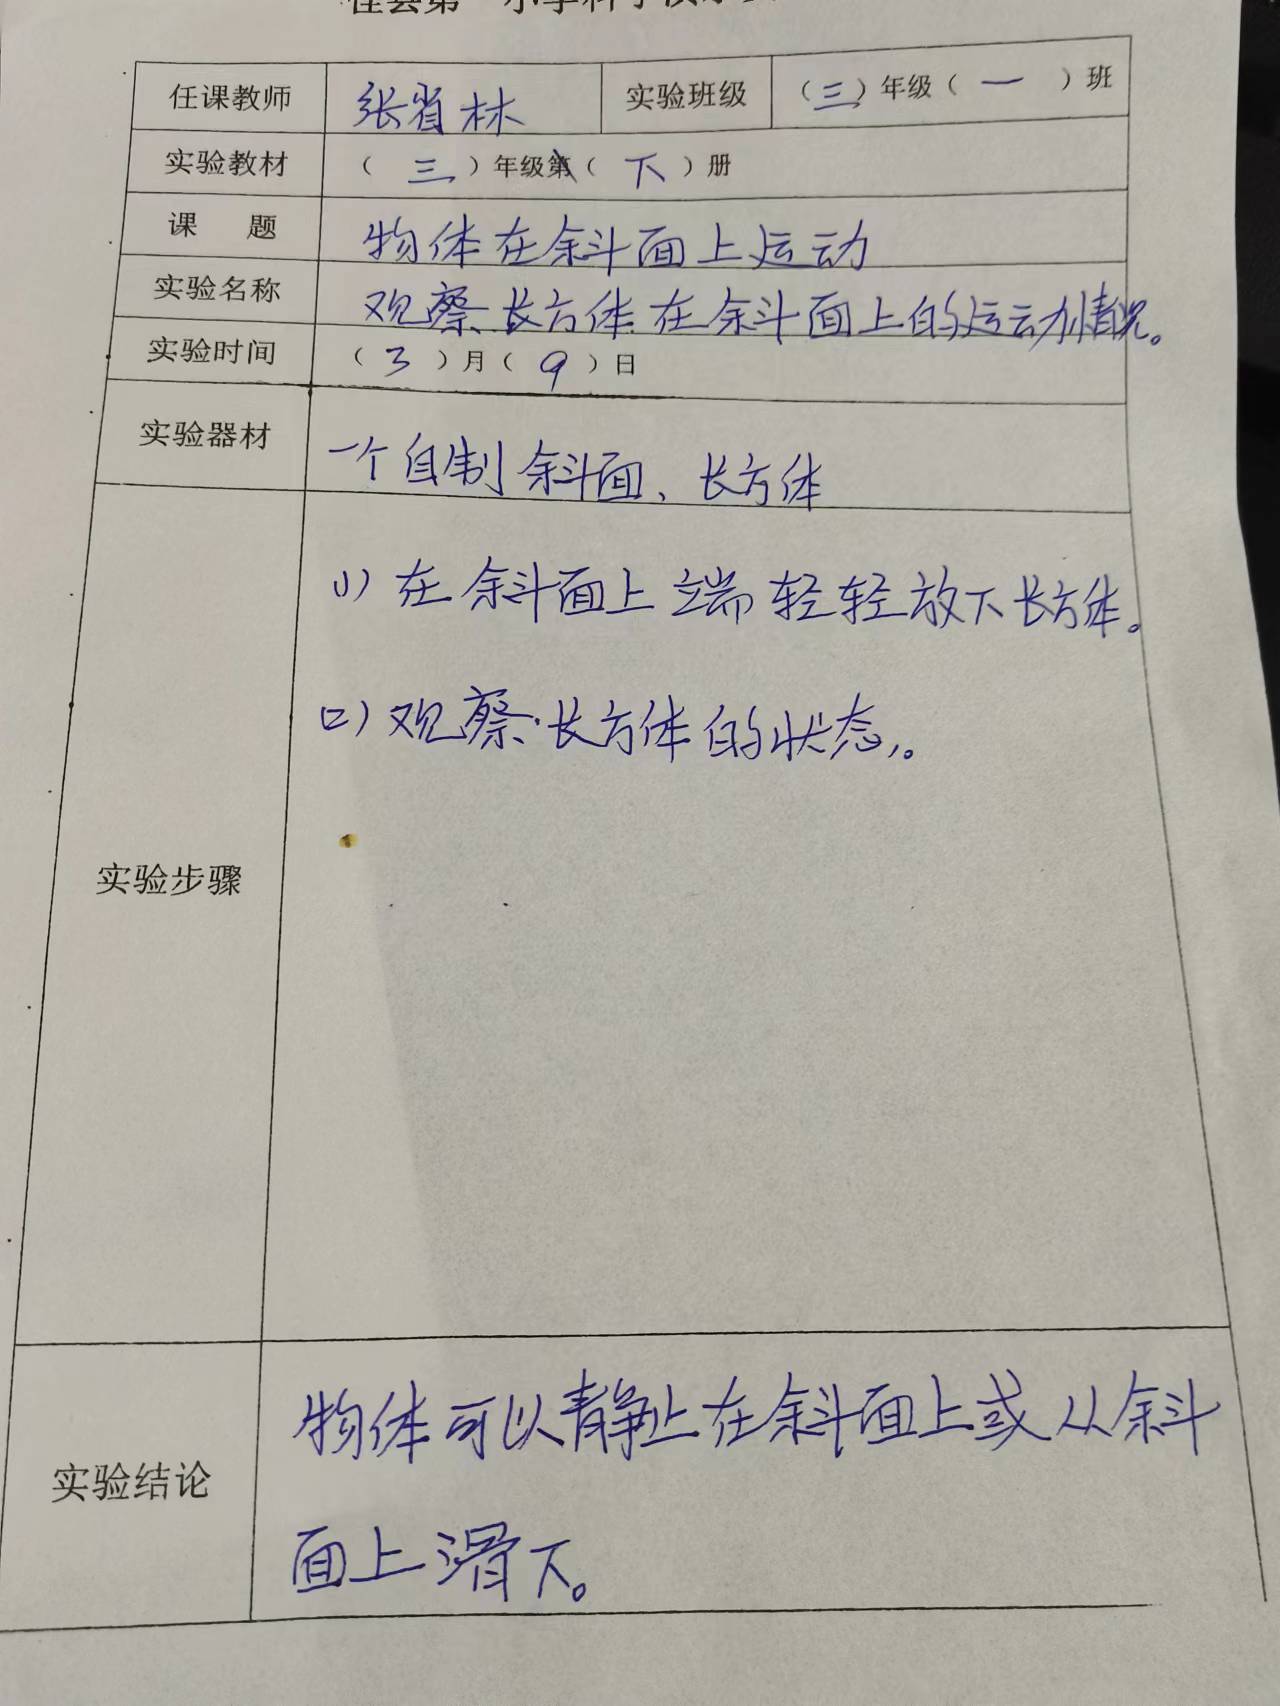 任课教师 张省林 实验班级 （三）年级（一）班
实验教材 （三）年级第（下）册
课 题 物体在斜面上运动
实验名称 观察长方体在斜面上的运动情况。
实验时间 （3）月（9）日
实验器材 一个自制斜面、长方体
实验步骤
(1) 在斜面上端轻轻放下长方体。
(2) 观察长方体的状态。
实验结论
物体可以静止在斜面上或从斜
面上滑下。